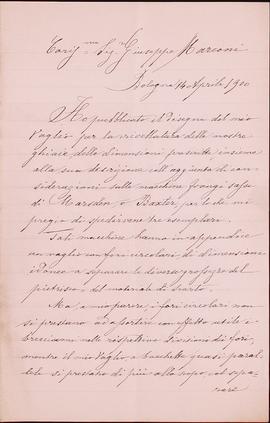 Preg.mo Sig. Giuseppe Marconi
Bologna 14 Aprile 1900
Ho pubblicato il disegno del mio
vaglio per la ricollatura delle nostre
ghiaie delle dimensioni presunte, insieme
alla sua descrizione coll'aggiunta di con-
siderazioni sulle macchine frangi sassi
di Marsden o Baxter, per lo che mi
pregio di spedirvene tre esemplari.
Tali macchine hanno in appendice
un vaglio con fori circolari di dimensione
idonea a separare le diverse grossezze del
pietrisco, del materiale di scarto.
Ma, a mio parere, i fori circolari non
si prestano ad assortire con effetto utile
brecciami nelle rispettive divisioni di fori,
mentre il mio Vaglio a bacchette quasi paral-
lele si prestano di più allo scopo col sepa-
rare